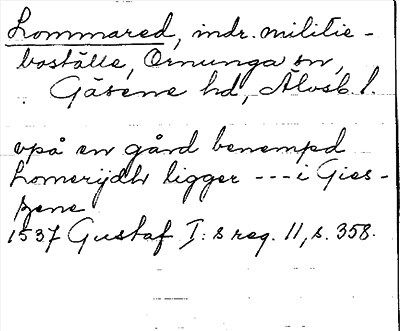 Lommared, indr. militie-
boställe, Ornunga sn,
Gäsene hd, Älvsb. l.
vpå en gård benempd
Lomerijdh ligger --- i Gies-
zene
1537 Gustaf I:s reg. 11, s. 358.